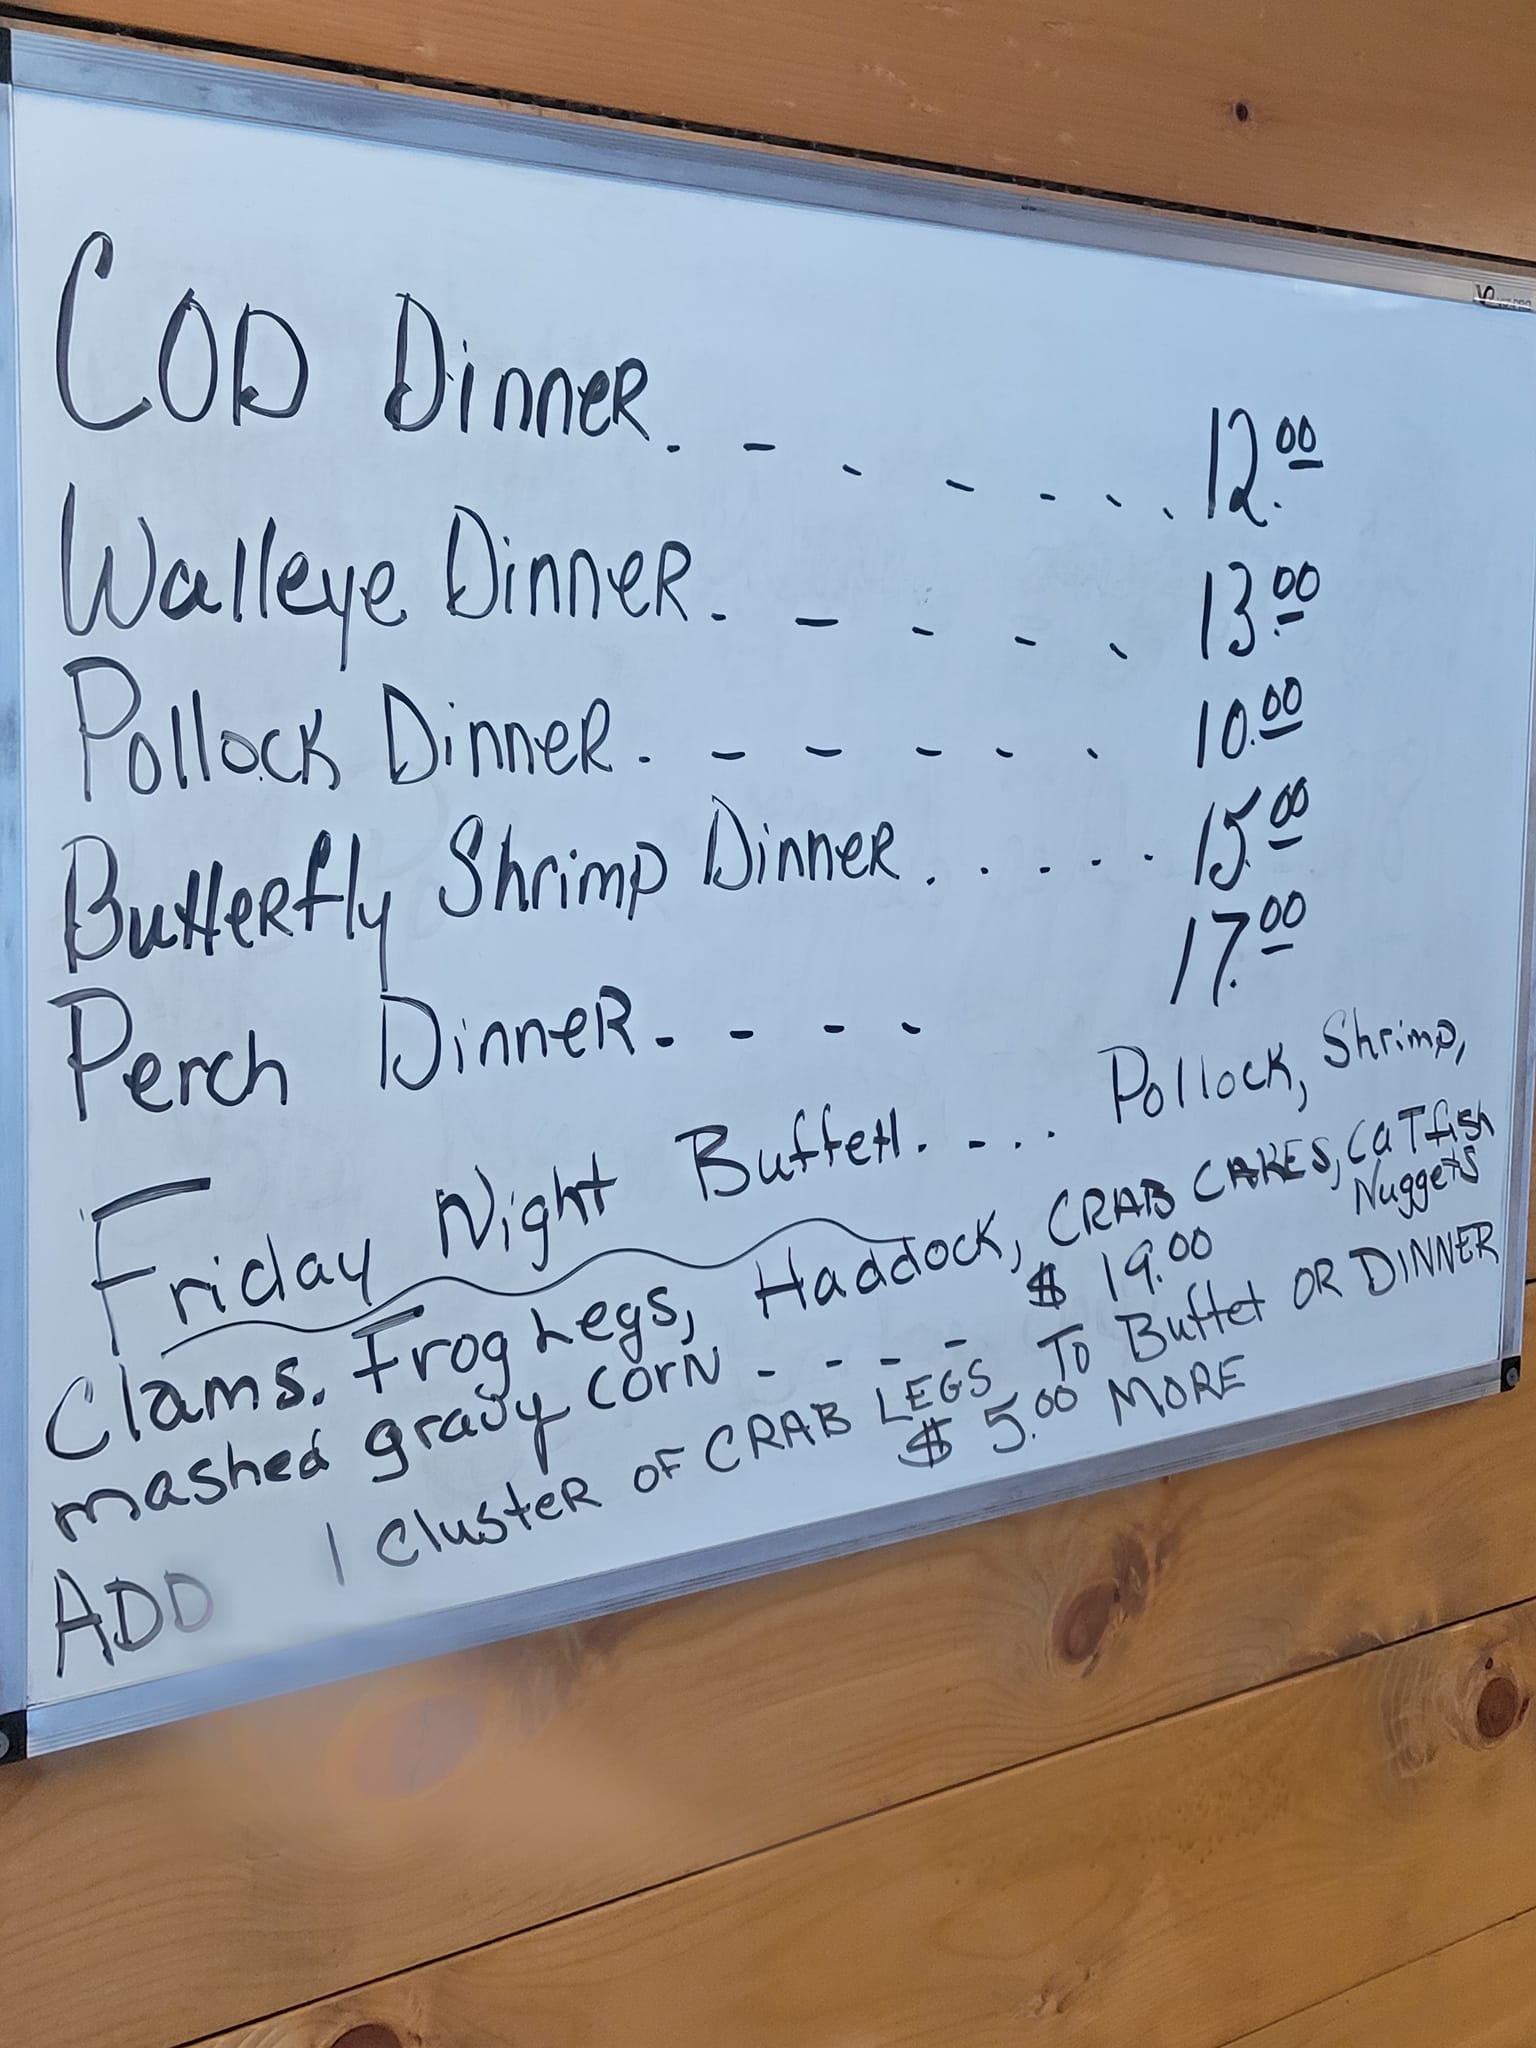 COD Dinner. - - - - - . 12.00
Walleye Dinner. - - - - 13.00
Pollock Dinner. - - - - - 10.00
Butterfly Shrimp Dinner. . . . . 15.00
Perch Dinner. - - - 17.00
Friday Night Buffett. - . . . Pollock, Shrimp,
Clams. Frog Legs, Haddock, CRAB CAKES, CaTfish
Nuggets
mashed gravy corn - - - - $ 19.00
ADD 1 Cluster OF CRAB LEGS TO Buffet OR DINNER
$ 5.00 MORE